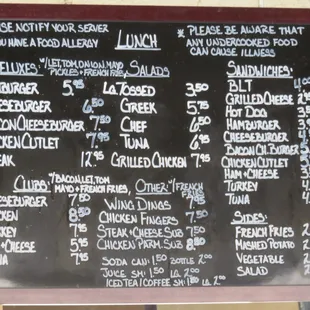 SE NOTIFY YOUR SERVER
OU HAVE A FOOD ALLERGY
LUNCH
* PLEASE BE AWARE THAT
ANY UNDERCOOKED FOOD
CAN CAUSE ILLNESS
ELUXES: *W/LET, TOM, ONION, MAYO
PICKLES + FRENCH FRIES
BURGER 5.95
ESEBURGER 6.50
CON CHEESEBURGER 7.95
CKEN CUTLET 7.95
EAK 12.95
SALADS
LG. TOSSED 3.50
GREEK 5.75
CHEF 6.50
TUNA 6.95
GRILLED CHICKEN 7.95
SANDWICHES:
BLT 4
GRILLED CHEESE
HOT DOG 3
HAMBURGER
CHEESEBURGER
BACON CH. BURGER
CHICKEN CUTLET
HAM + CHEESE
TURKEY 4
TUNA
CLUBS: *W/BACON, LET, TOM
MAYO + FRENCH FRIES
SEBURGER 7.50
CKEN 8.50
EY 7.50
+ CHEESE 5.95
NA 7.95
OTHER: *W/FRENCH FRIES
WING DINGS 7.95
CHICKEN FINGERS 7.50
STEAK + CHEESE SUB 7.50
CHICKEN PARM. SUB 8.50
SODA CAN: 1.50 BOTTLE 2.00
JUICE SM: 1.50 LG. 2.00
ICED TEA / COFFEE SM: 1.50 LG. 2.00
SIDES:
FRENCH FRIES 2
MASHED POTATO 2
VEGETABLE 2
SALAD 2